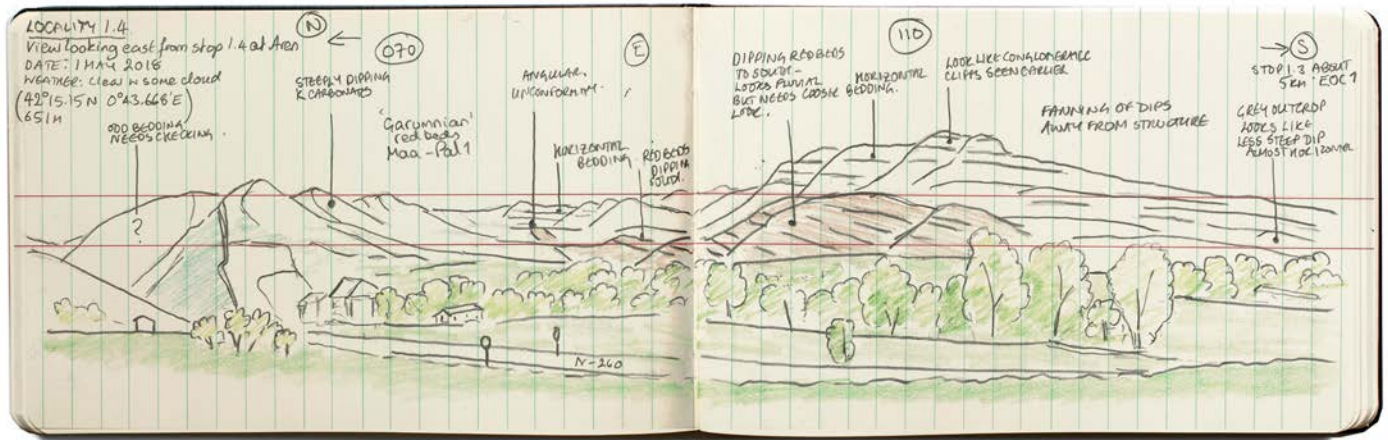 LOCALITY 1.4
View looking east from stop 1.4 at Aren
DATE: 1 MAY 2018
WEATHER: Clear w some cloud
(42°15.15N 0°43.668'E)
651M
ODD BEDDING
NEEDS CHECKING.
N
070
STEEPLY DIPPING
K CARBONATES
'Garumnian'
red beds
Maa-Pal?
ANGULAR
UNCONFORMITY.
E
HORIZONTAL
BEDDING
RED BEDS
DIPPING
SOUTH.
?
N-260
DIPPING RED BEDS
TO SOUTH-
LOOKS FLUVIAL
BUT NEEDS CLOSER
LOOK.
HORIZONTAL
BEDDING.
110
LOOK LIKE CONGLOMERATE
CLIFFS SEEN EARLIER
FANNING OF DIPS
AWAY FROM STRUCTURE
S
STOP 1.3 ABOUT
5km: EOC?
GREY OUTCROP
LOOKS LIKE
LESS STEEP DIP
ALMOST HORIZONTAL